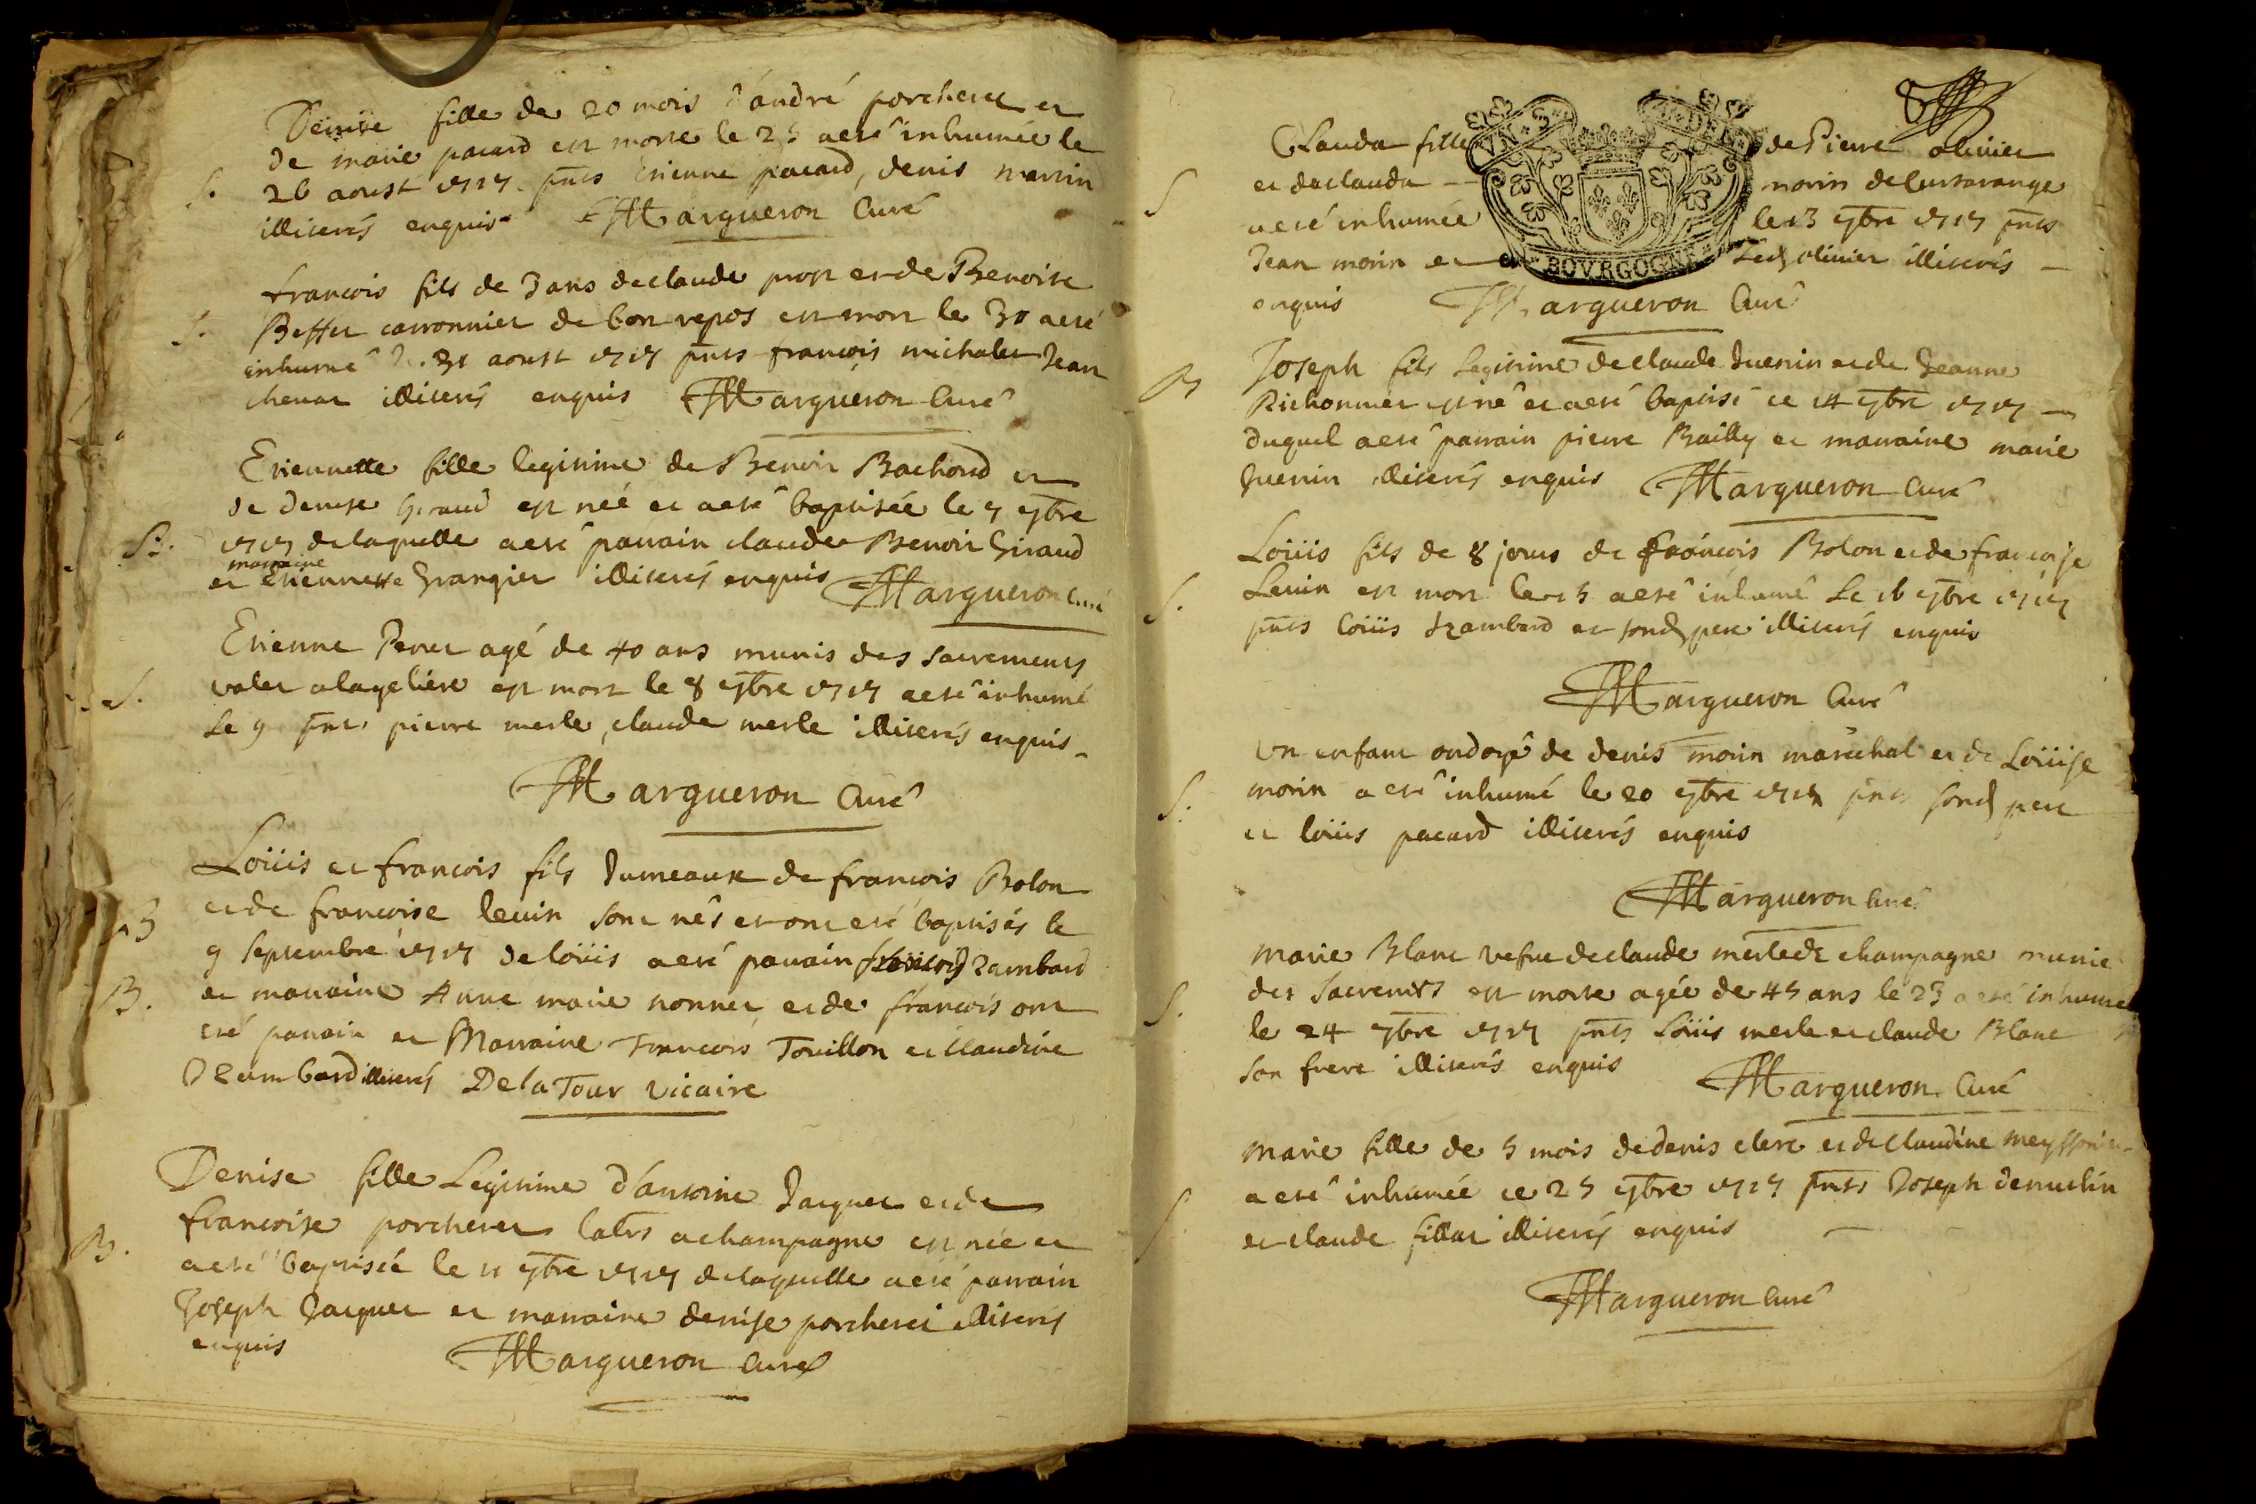 Denise fille de 20 mois d'andré porcheret et
de marie pacard est morte le 25 a eté inhumée le
S. 26 aoust 1717 pnts Etienne pacard, denis martin
illiterés enquis Margueron Curé
francois fils de 3 ans de claude prost et de Benoite
S. carronnier de bon repos est mort le 30 a eté
inhumé le 31 aoust 1717 pnts francois michalet Jean
chenat illiterés enquis Margueron Curé
Etiennette fille legitime de Benoit Bachoud et
de denise Giraud est née et a eté baptisée le 7 7bre
B. 1717 de laquelle a eté parrain claude Benoit Giraud
marraine
et Etiennette Grangier illiterés enquis Margueron Curé
Etienne Perret agé de 40 ans munis des sacrements
S. valet a la geliere est mort le 8 7bre 1717 a eté inhumé
Le 9 pnts pierre merle, claude merle illiterés enquis
Margueron Curé
Loüis et francois fils Jumeaux de francois Bolon
B et de francoise levin sont nés et ont eté baptisés le
9 septembre 1717 de loüis a eté parrain Zambard
B. et marraine Anne marie nonnet et de francois ont
eté parain et Marraine Francois Touillon et Claudine
illiterés De la Tour vicaire
Denise fille Legitime d'antoine Jacquet et de
francoise porcheret labrs a champagne est née et
B. a eté baptisée le 11 7bre 1717 de laquelle a eté parrain
Joseph Jacquet et marraine denise porcheret illiterés
enquis Margueron Curé
Clauda fille de Pierre olivier
S et de clauda morin de
a eté inhumée le 13 7bre 1717 pnts
Jean morin et led olivier illiterés
enquis Margueron Curé
VN S. 4 DEN.
BOVRGOGNE
Joseph fils Legitime de claude Guenin et de Jeanne
B Richonnier est né et a eté baptisé ce 14 7bre 1717
duquel a eté parrain pierre Bailly et marraine marie
Guenin illiterés enquis Margueron Curé
Loüis fils de 8 jours de francois Bolon et de francoise
S. Levin est mort le 15 a eté inhumé Le 16 7bre 1717
pnts loüis Zambard et sond pere illiterés enquis
Margueron Curé
Un enfant ondoyé de denis morin maréchal et de Loüise
S. morin a eté inhumé le 20 7bre 1717 pnts sond pere
et loüis pacard illiterés enquis
Margueron Curé
Marie Blanc vefve de claude merle de champagne munie
S. des sacremts est morte agée de 45 ans le 23 a eté inhumée
le 24 7bre 1717 pnts Loüis merle et claude Blanc
son frere illiterés enquis Margueron Curé
Marie fille de 5 mois de denis clerc et de Claudine
S a eté inhumée ce 25 7bre 1717 pnts Joseph demuslin
et claude fillat illiterés enquis
Margueron Curé